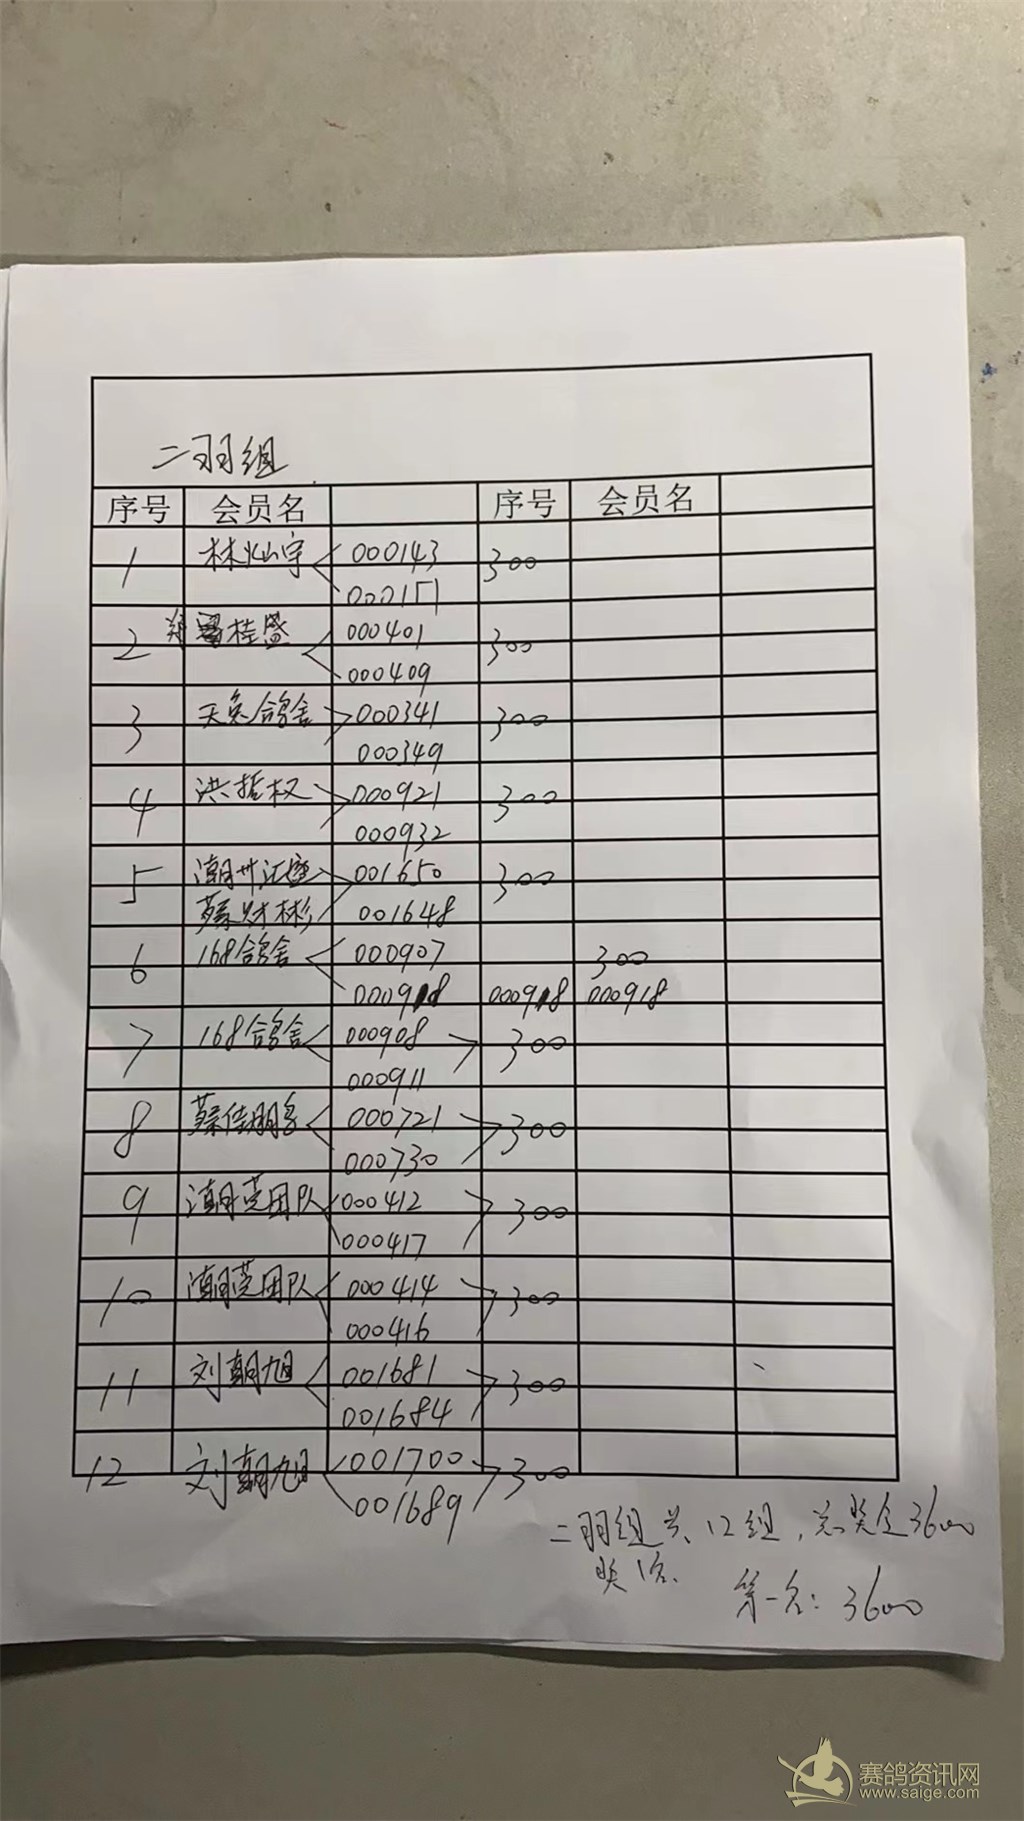 二羽组
序号 会员名 序号 会员名
1 林灿宇 000143 300
000151
2 桂盛 000401 300
000409
3 天兔鸽舍 000341 300
000349
4 洪哲权 000921 300
000932
5 潮州汇盛 001650 300
蔡财彬 001648
6 168鸽舍 000907 300
000918 000918 000918
7 168鸽舍 000908 300
000911
8 蔡佳朋 000721 300
000730
9 潮莞团队 000412 300
000417
10 潮莞团队 000414 300
000416
11 刘朝旭 001681 300
001684
12 刘朝旭 001700 300
001689
二羽组共12组,总奖金3600
奖1名.
第一名:3600
赛鸽资讯网
www.saige.com